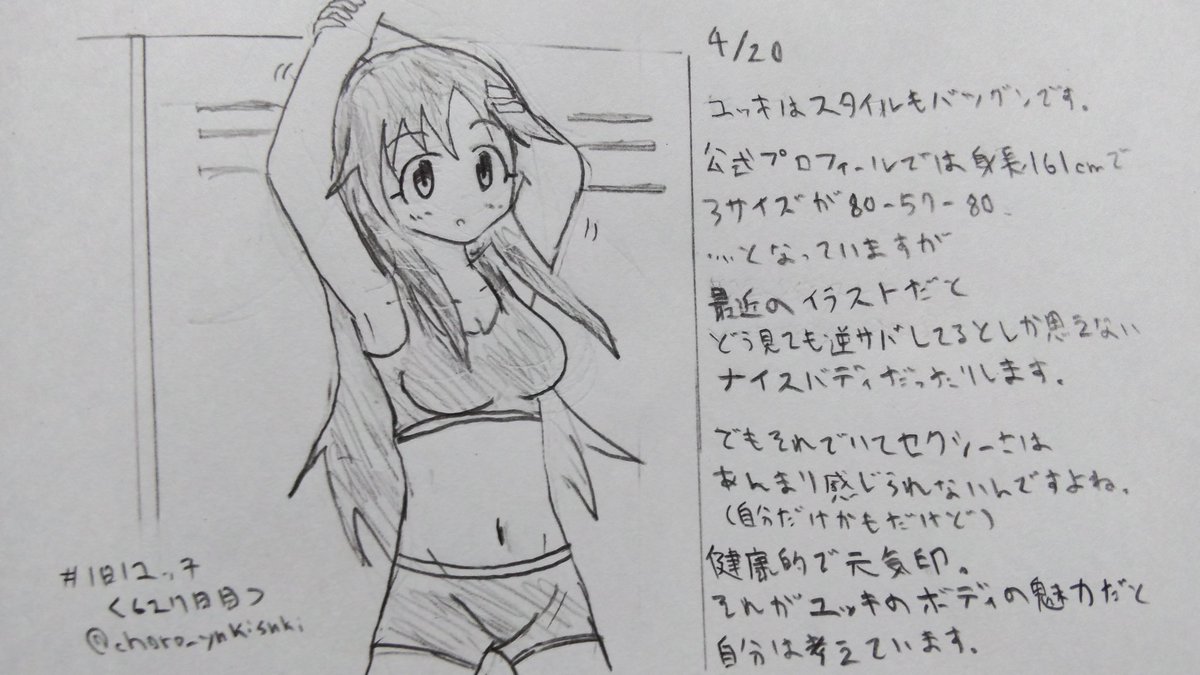 4/20
ユッキはスタイルもバツグンです。
公式プロフィールでは身長161cmで
3サイズが80-57-80.
...となっていますが
最近のイラストだと
どう見ても逆サバしてるとしか思えない
ナイスバディだったりします。
でもそれでいてセクシーさは
あんまり感じられないんですよね。
(自分だけかもだけど)
健康的で元気印。
それがユッキのボディの魅力だと
自分は考えています。
#1日1ユッキ
<627日目>
@choro_yukisuki